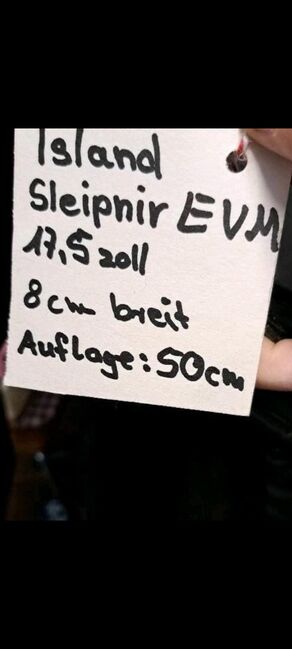 Island
Sleipnir EVM
17,5 zoll
8cm breit
Auflage: 50cm